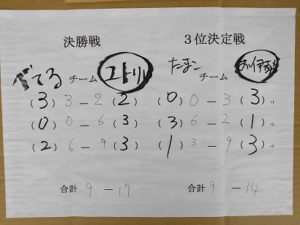 決勝戦 3位決定戦
でてる チーム ユトリ たまこ チーム
(3) 3 - 2 (2) (0) 0 - 3 (3)
(0) 0 6 (3) (3) 6 2 (1)
(2) 6 - 9 (3) (1) 3 - 9 (3)
合計 9 - 17 合計 9 - 14